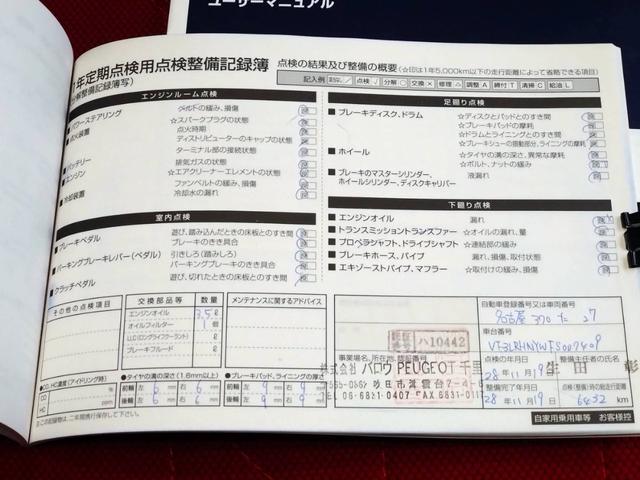 ユーザーマニュアル
1年定期点検用点検整備記録簿 点検の結果及び整備の概要(☆印は1年5,000km以下の走行距離によって省略できる項目)
分解整備記録簿写)
記入例 点検 分解 交換 × 修理 △ 調整 A 締付 T 清掃 C 給油 L
エンジンルーム点検
パワーステアリング ベルトの緩み、損傷
点火装置 ☆スパークプラグの状態
点火時期
ディストリビューターのキャップの状態
バッテリー ターミナル部の接続状態
エンジン 排気ガスの状態
☆エアクリーナーエレメントの状態
冷却装置 ファンベルトの緩み、損傷
冷却水の漏れ
室内点検
ブレーキペダル 遊び、踏み込んだときの床板とのすき間
ブレーキのきき具合
パーキングブレーキレバー(ペダル) 引きしろ(踏みしろ)
パーキングブレーキのきき具合
クラッチペダル 遊び、切れたときの床板とのすき間
足廻り点検
ブレーキディスク、ドラム ☆ディスクとパッドとのすき間
☆ブレーキパッドの摩耗
☆ドラムとライニングとのすき間
☆ブレーキシューの摺動部分、ライニングの摩耗
ホイール ☆タイヤの溝の深さ、異常な摩耗
☆ボルト、ナットの緩み
ブレーキのマスターシリンダー、 液漏れ
ホイールシリンダー、ディスクキャリパー
下廻り点検
エンジンオイル 漏れ
トランスミッショントランスファー ☆オイルの漏れ、量
プロペラシャフト、ドライブシャフト ☆連結部の緩み
ブレーキホース、パイプ 漏れ、損傷、取付状態
エキゾーストパイプ、マフラー ☆取付けの緩み、損傷
その他の点検項目 交換部品等 数量 メンテナンスに関するアドバイス
エンジンオイル 3.5 ℓ
オイルフィルター 1 個
LLC(ロングライフクーラント) ℓ
ブレーキフルード ℓ
CO、HC濃度(アイドリング時)
CO %
HC
●タイヤの溝の深さ(1.6mm以上)
前輪 左 6 mm 右 6 mm
後輪 左 6 mm 右 6 mm
●ブレーキパッド、ライニングの厚さ
前輪 左 9 mm 右 9 mm
後輪 左 9 mm 右 9 mm
※この記録簿は、二年間携行保存して下さい。
認証
ハ10442
事業場名、所在地、認証番号
株式会社 バロウ PEUGEOT 千里
吹田市清雲台
TEL 06-6831-0407 FAX
自動車登録番号又は車両番号
名古屋 370 た 27
車台番号
点検の年月日 整備主任者の氏名
28年11月19日 生田 彰
整備完了年月日 点検(整備)時の総走行距離
28年11月19日 6432 km
自家用乗用車等 お客様控